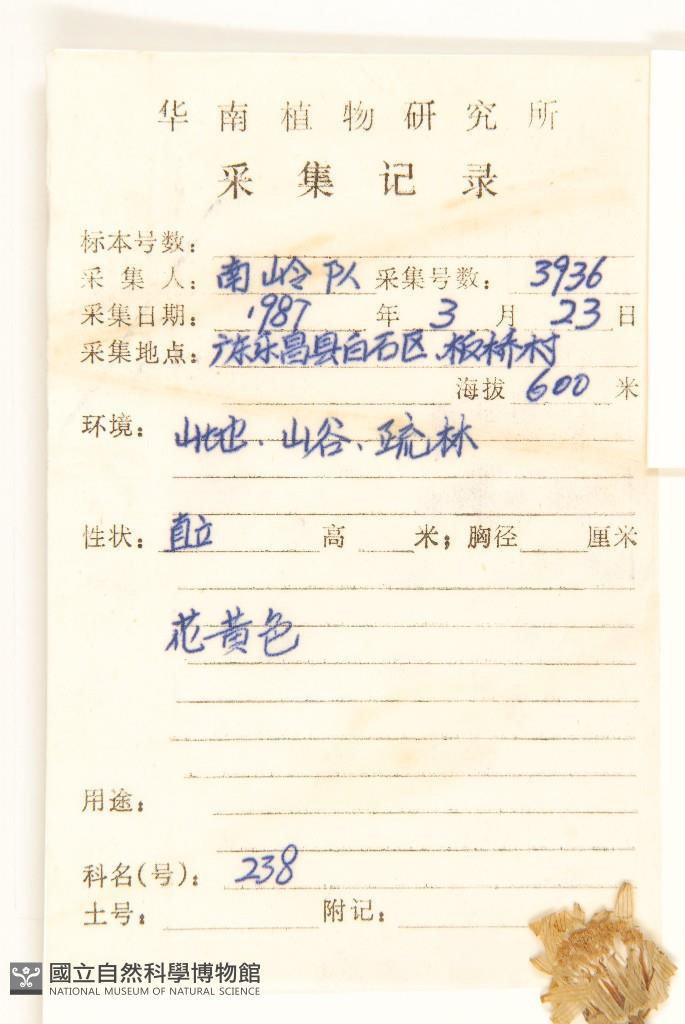 华南植物研究所
采集记录
标本号数：
采集人：南岭队 采集号数：3936
采集日期：1987年3月23日
采集地点：广东乐昌县白石区、板桥村
海拔 600 米
环境：山地、山谷、疏林
性状：直立 高 米；胸径 厘米
花黄色
用途：
科名(号)：238
土号： 附记：
國立自然科學博物館
NATIONAL MUSEUM OF NATURAL SCIENCE